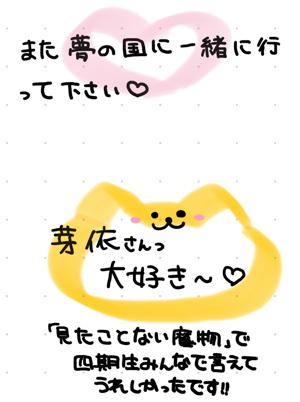 また夢の国に一緒に行
って下さい♡
芽依さんっ
大好き〜♡
「見たことない魔物」で
四期生みんなで言えて
うれしかったです!!